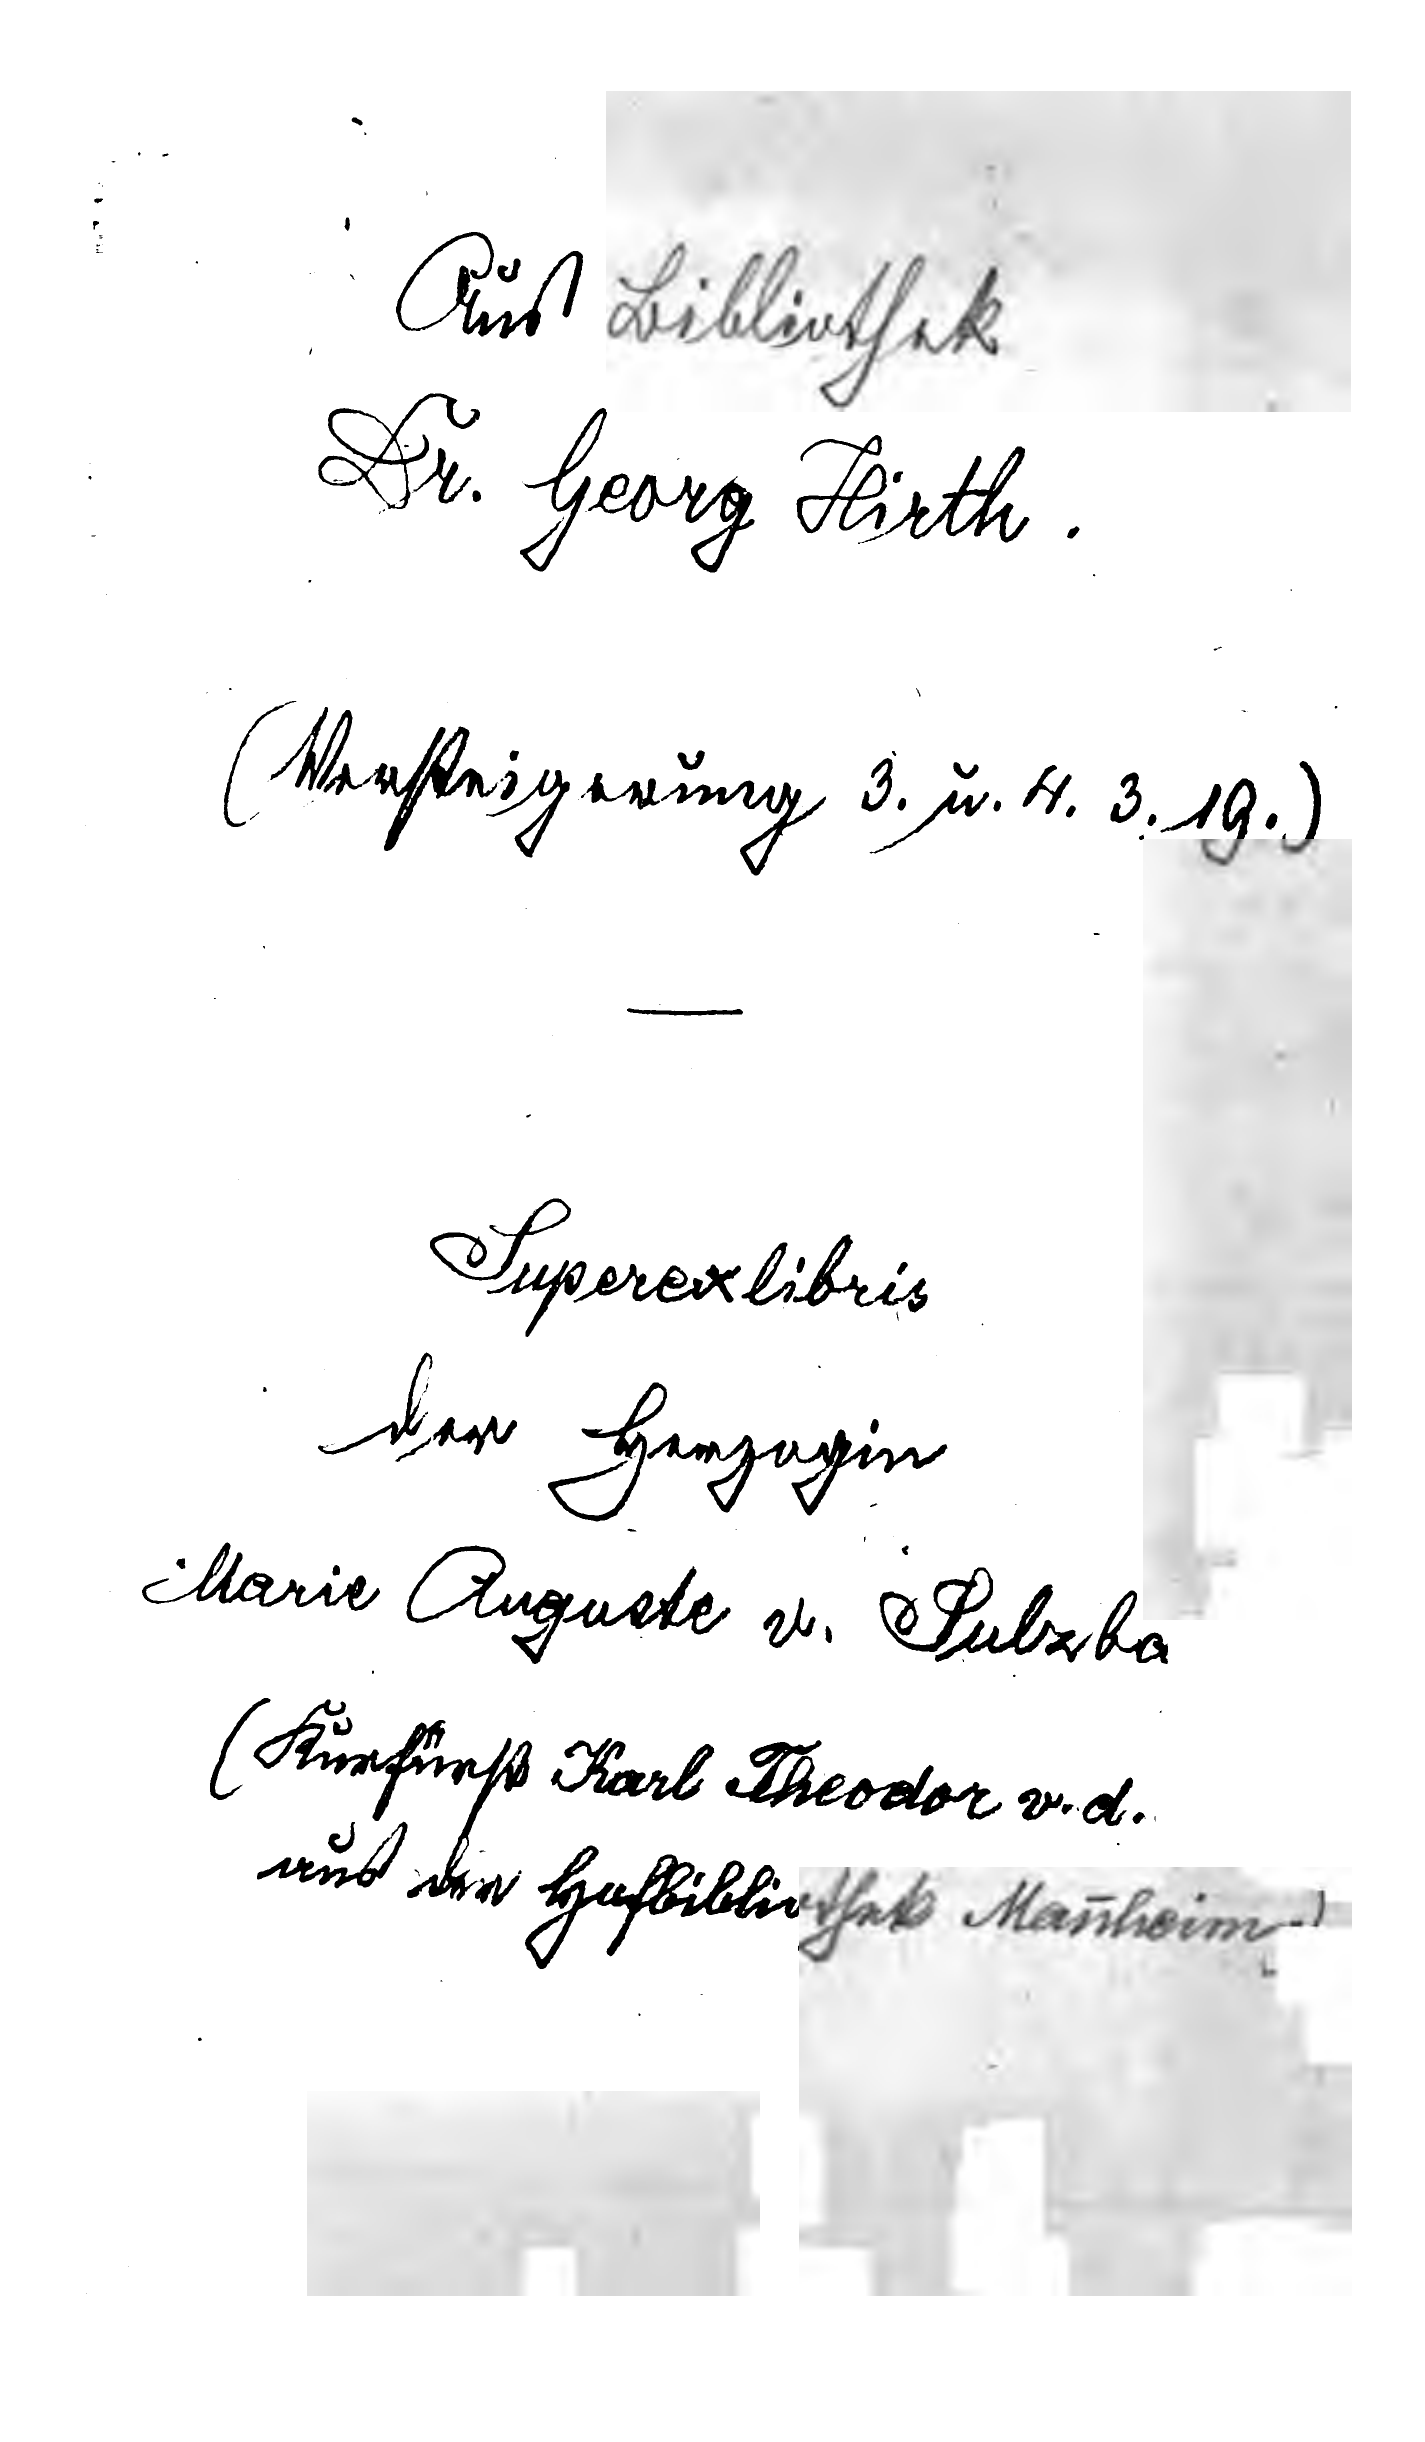 Aus Bibliothek
Dr. Georg Hirth.
(Versteigerung 3. u. 4. 3. 19.)
Superexlibris
der Herzogin
Marie Auguste v. Sulzba
(Kurfürst Karl Theodor v. d.
aus der Hofbibliothek Man̄heim.)